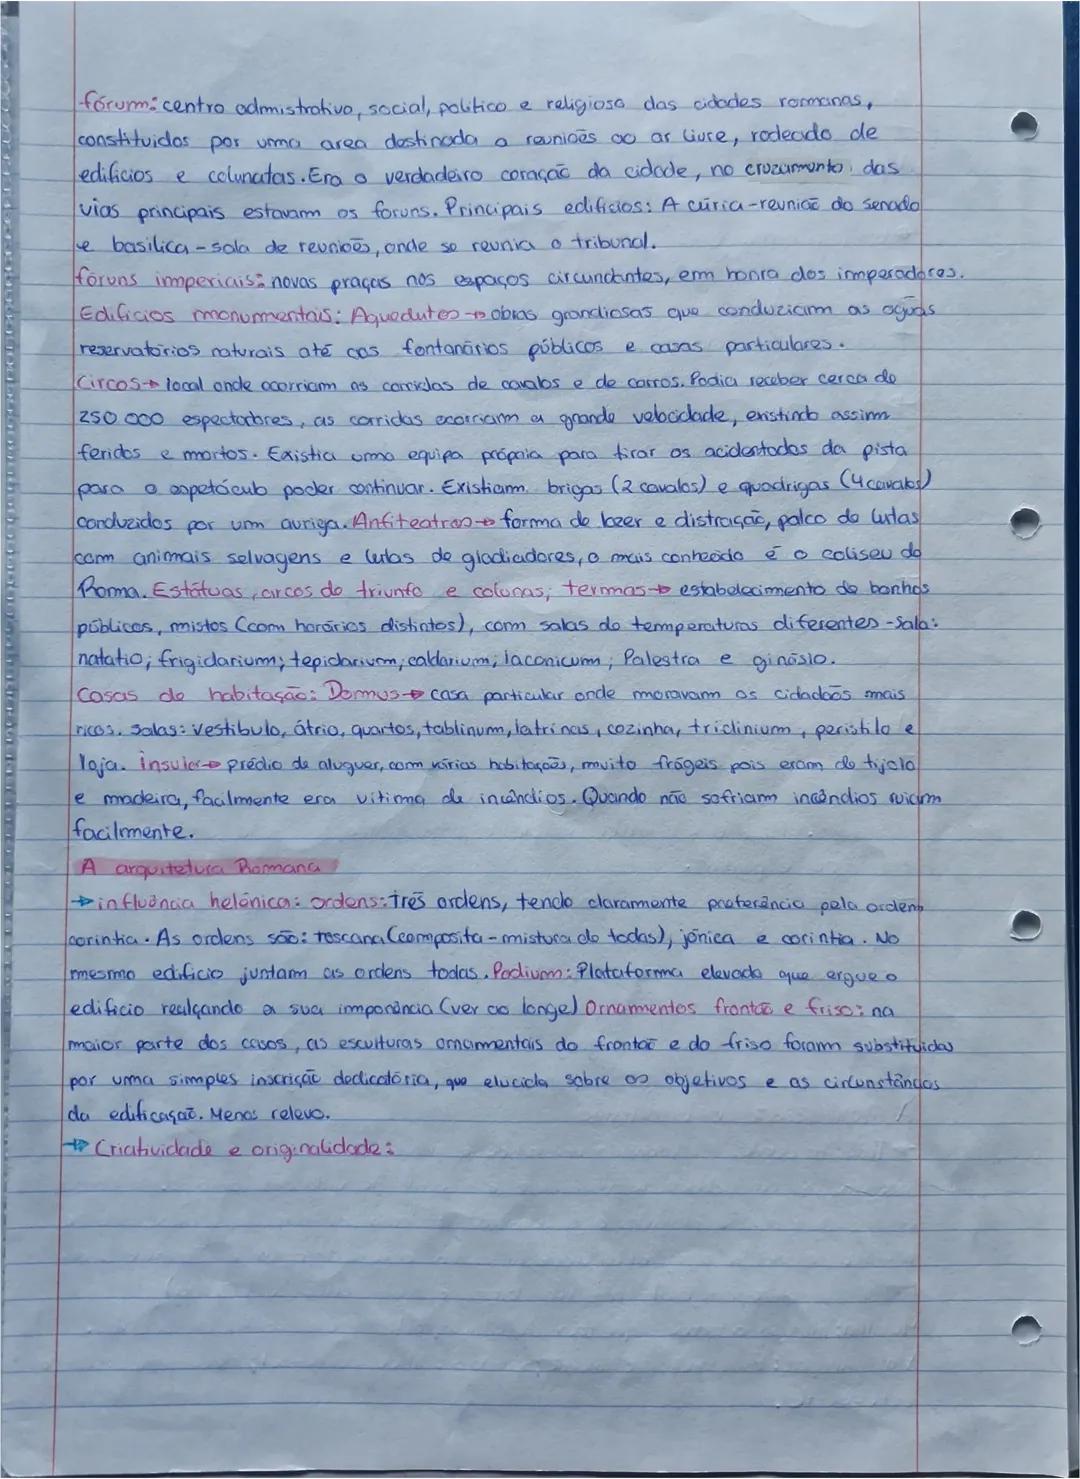 fórum: centro admistrativo, social, politico e religioso das cidades romanas,
constituidos por uma area destinada a reuniões ao ar livre, rodeado de
edificios e colunatas. Era o verdadeiro coração da cidade, no cruzamento das
vias principais estavam os foruns. Principais edificios: A cúria-reunião do senado
e basilica - sala de reuniões, onde se reunia o tribunal.
fóruns imperiais: novas praças nos espaços circundantes, em honra dos imperadores.
Edificios monumentais: Aquedutos → obras grandiosas que conduziam as águas
reservatórios naturais até aos fontanários públicos e casas particulares.
Circos → local onde ocorriam as corridas de cavalos e de carros. Podia receber cerca de
250 000 espectadores, as corridas ocorriam a grande velocidade, existindo assim
feridos e mortos. Existia uma equipa própria para tirar os acidentados da pista
para o espetáculo poder continuar. Existiam brigas (2 cavalos) e quadrigas (4 cavalos)
conduzidos por um auriga. Anfiteatros → forma de lazer e distração, palco de lutas
com animais selvagens e lutas de gladiadores, o mais conhecido é o coliseu de
Roma. Estátuas, arcos do triunfo e colunas; termas → estabelecimento de banhos
públicos, mistos (com horários distintos), com salas de temperaturas diferentes - Sala:
natatio; frigidarium; tepidarium; caldarium; laconicum; Palestra e ginásio.
Casas de habitação: Domus → casa particular onde moravam os cidadãos mais
ricos. Salas: vestibulo, átrio, quartos, tablinum, latrinas, cozinha, triclinium, peristilo e
loja. insula → prédio de aluguer, com várias habitações, muito frágeis pois eram de tijolo
e madeira, facilmente era vitima de incêndios. Quando não sofriam incêndios ruiam
facilmente.
A arquitetura Romana
→ influência helénica: ordens: três ordens, tendo claramente preferência pela ordem
corintia. As ordens são: toscana (composita - mistura de todas), jónica e corintia. No
mesmo edificio juntam as ordens todas. Podium: Plataforma elevada que ergue o
edificio realçando a sua imponência (ver ao longe) Ornamentos frontão e friso: na
maior parte dos casos, as esculturas ornamentais do frontão e do friso foram substituidas
por uma simples inscrição dedicatória, que elucida sobre os objetivos e as circunstâncias
da edificação. Menos relevo.
→ Criatividade e originalidade: